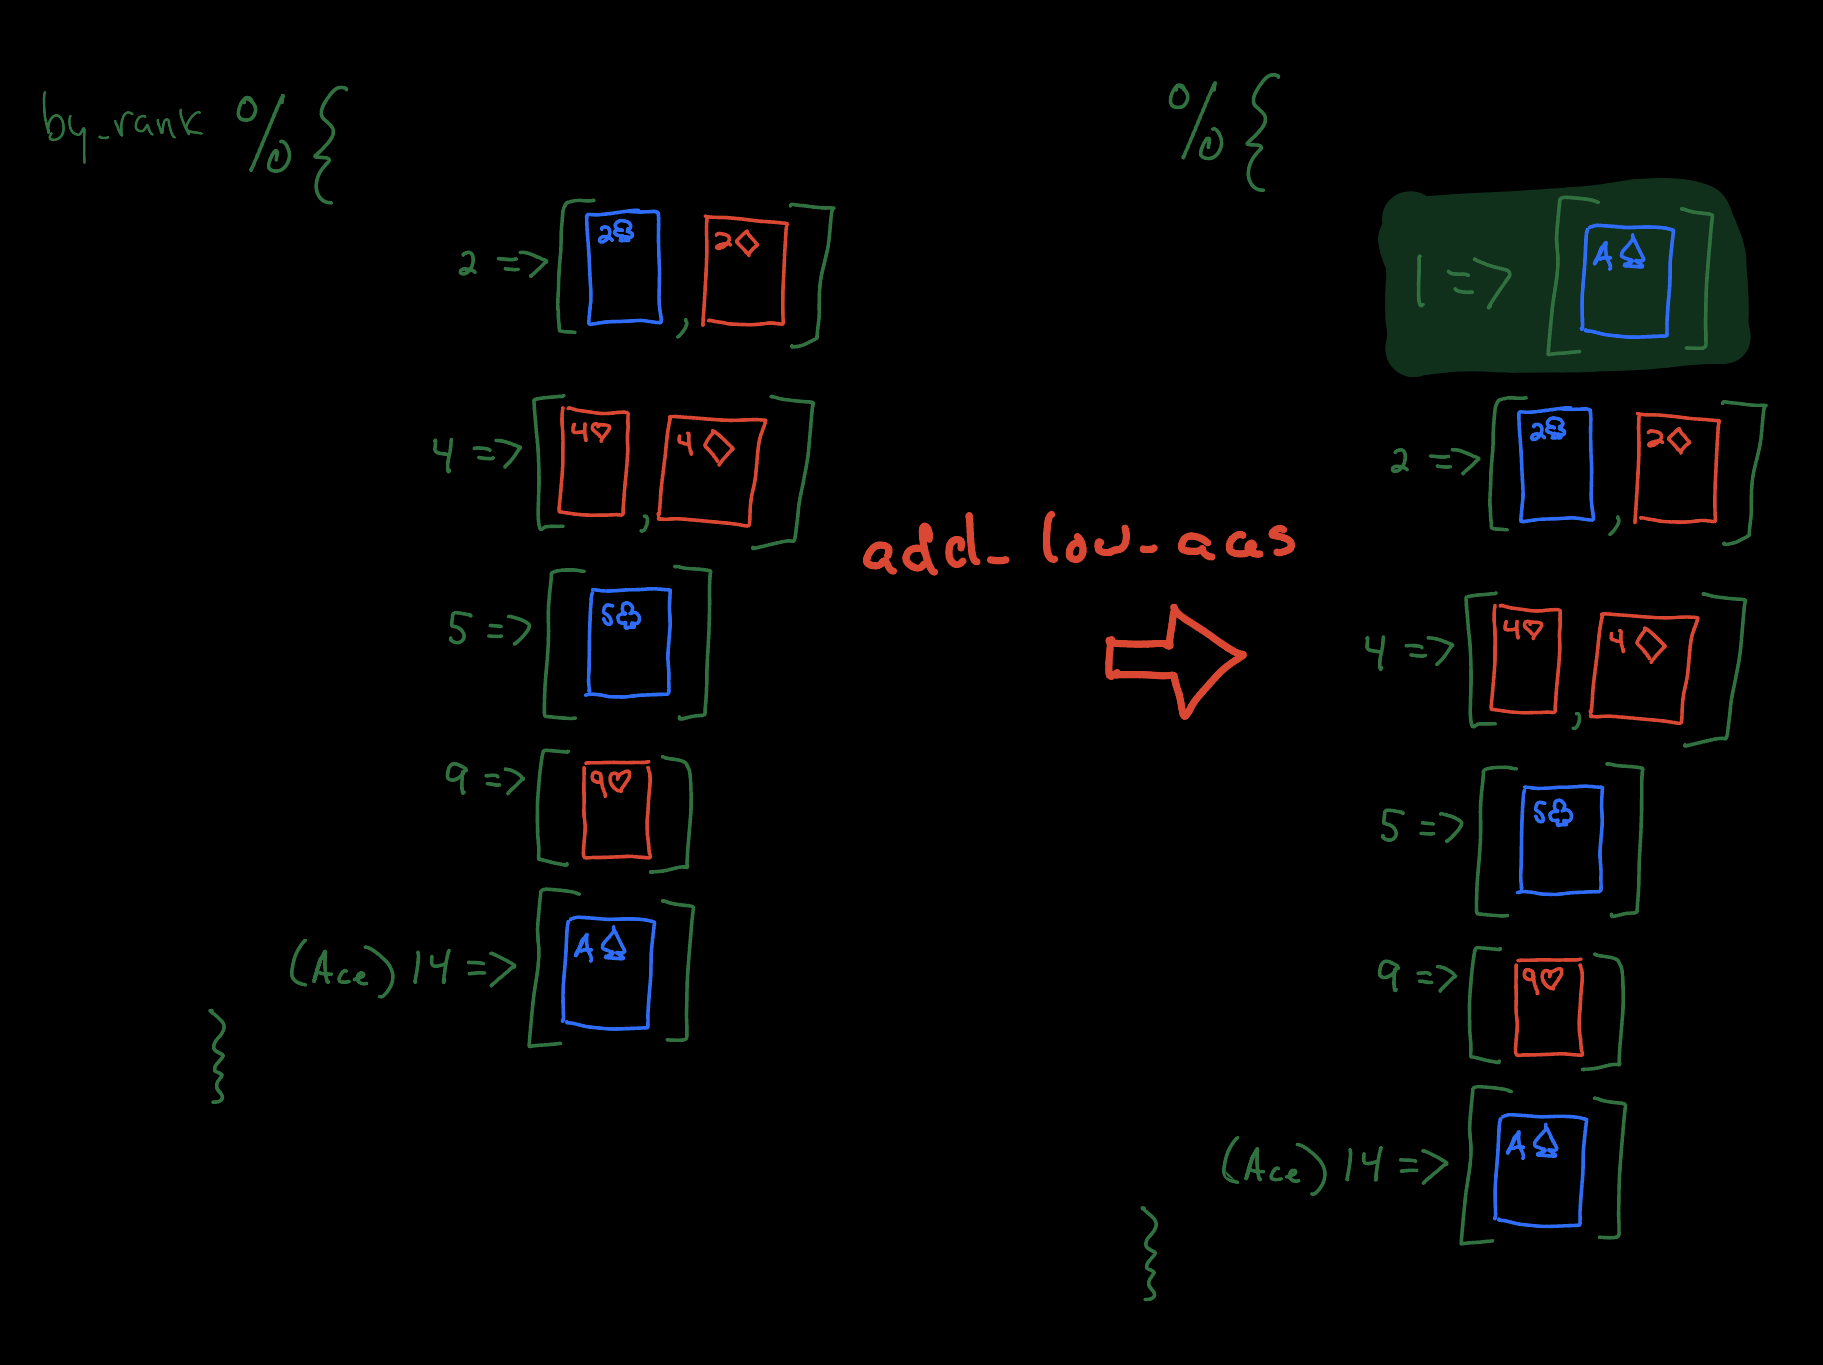 by_rank %{
2 => [2♣, 2♢]
4 => [4♡, 4♢]
5 => [5♣]
9 => [9♡]
(Ace) 14 => [A♤]
}
add_low_aces
%{
1 => [A♤]
2 => [2♣, 2♢]
4 => [4♡, 4♢]
5 => [5♣]
9 => [9♡]
(Ace) 14 => [A♤]
}